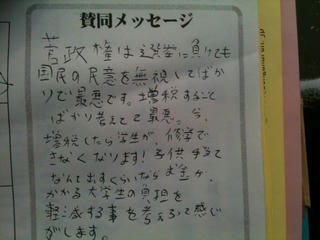 賛同メッセージ
菅政権は選挙に負けても
国民の民意を無視してばか
りで最悪です。増税すること
ばかり考えてて最悪。今、
増税したら学生が、修学で
きなくなります!子供手当て
なんて出すくらいならお金が
かかる大学生の負担を
軽減する事を考えろって感じ
がします。